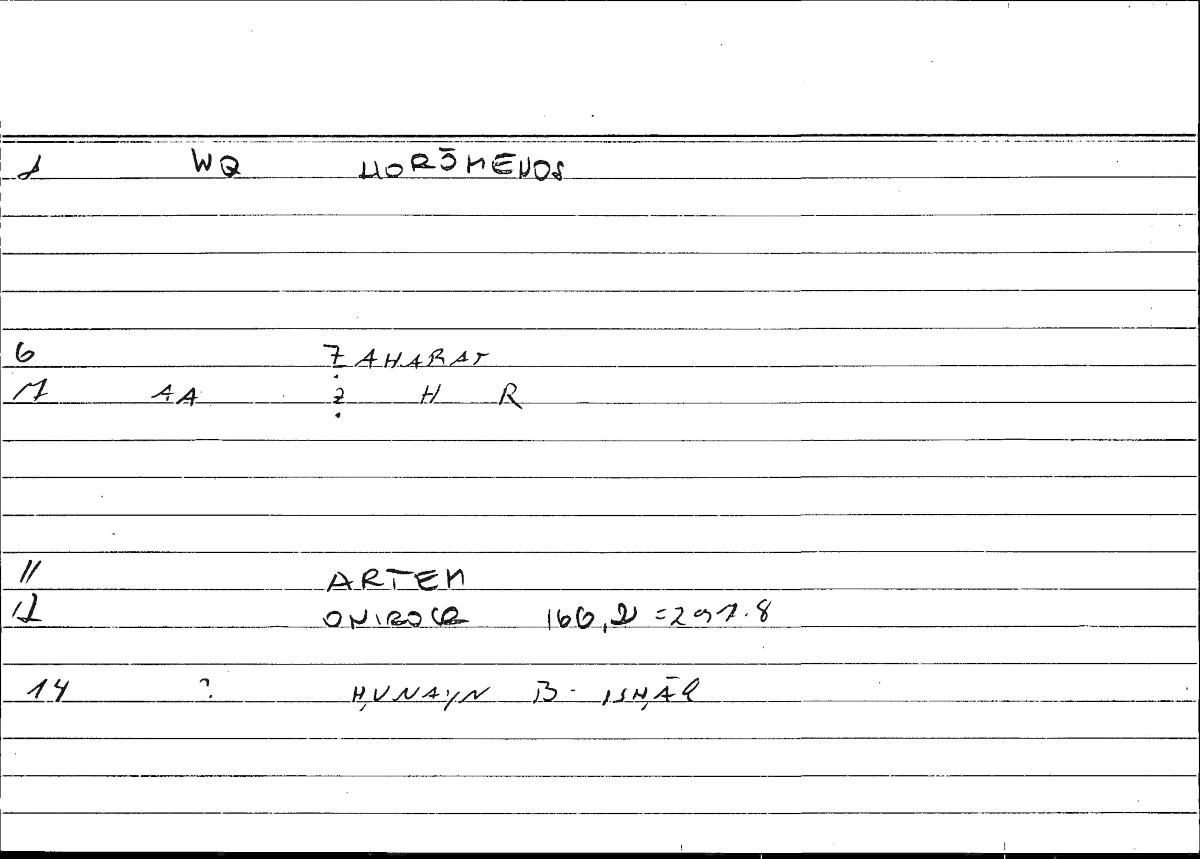 1 WQ HORŌMENOS
6 ẒAHARAT
7 AA ẓ H R
11 ARTEM
12 ONIROCR 166,21 =291.8
14 ? ḤUNAYN B. ISḤĀQ